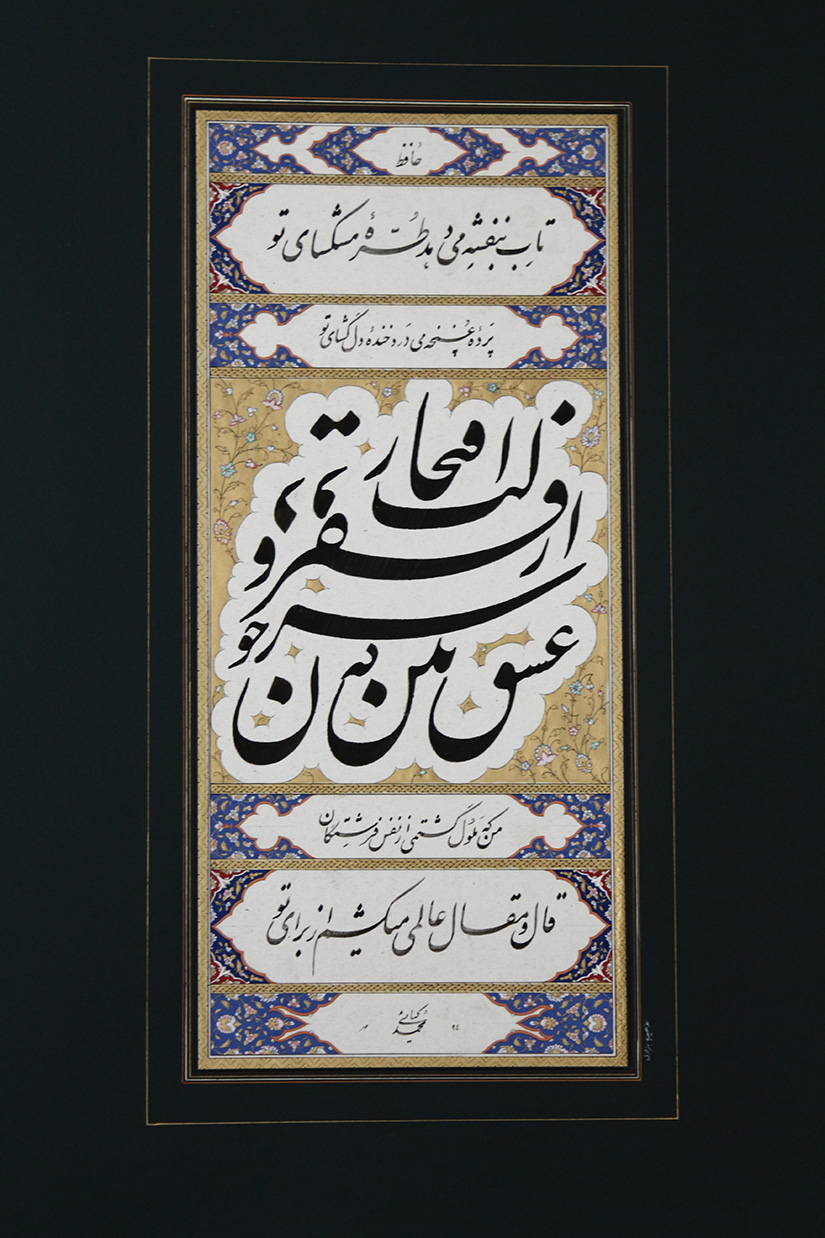 حافظ
تاب بنفشه می دهد طرهٔ مشکسای تو
پردهٔ غنچه می درد خندهٔ دل گشای تو
دولت عشق بین که چون از سر فقر و افتخار
من که ملول گشتمی از نفس فرشتگان
قال و مقال عالمی میکشم از برای تو
محمد
۹۴